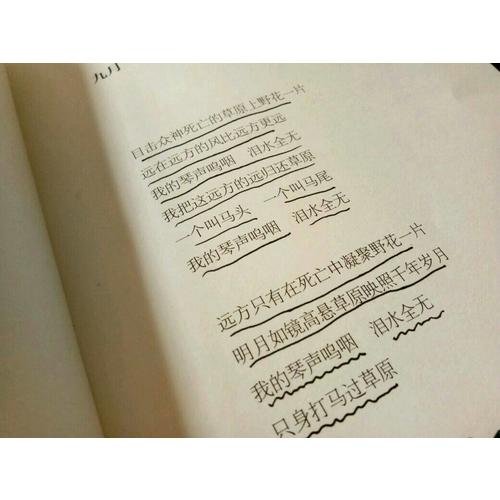 九月
目击众神死亡的草原上野花一片
远在远方的风比远方更远
我的琴声呜咽 泪水全无
我把这远方的远归还草原
一个叫马头 一个叫马尾
我的琴声呜咽 泪水全无
远方只有在死亡中凝聚野花一片
明月如镜高悬草原映照千年岁月
我的琴声呜咽 泪水全无
只身打马过草原